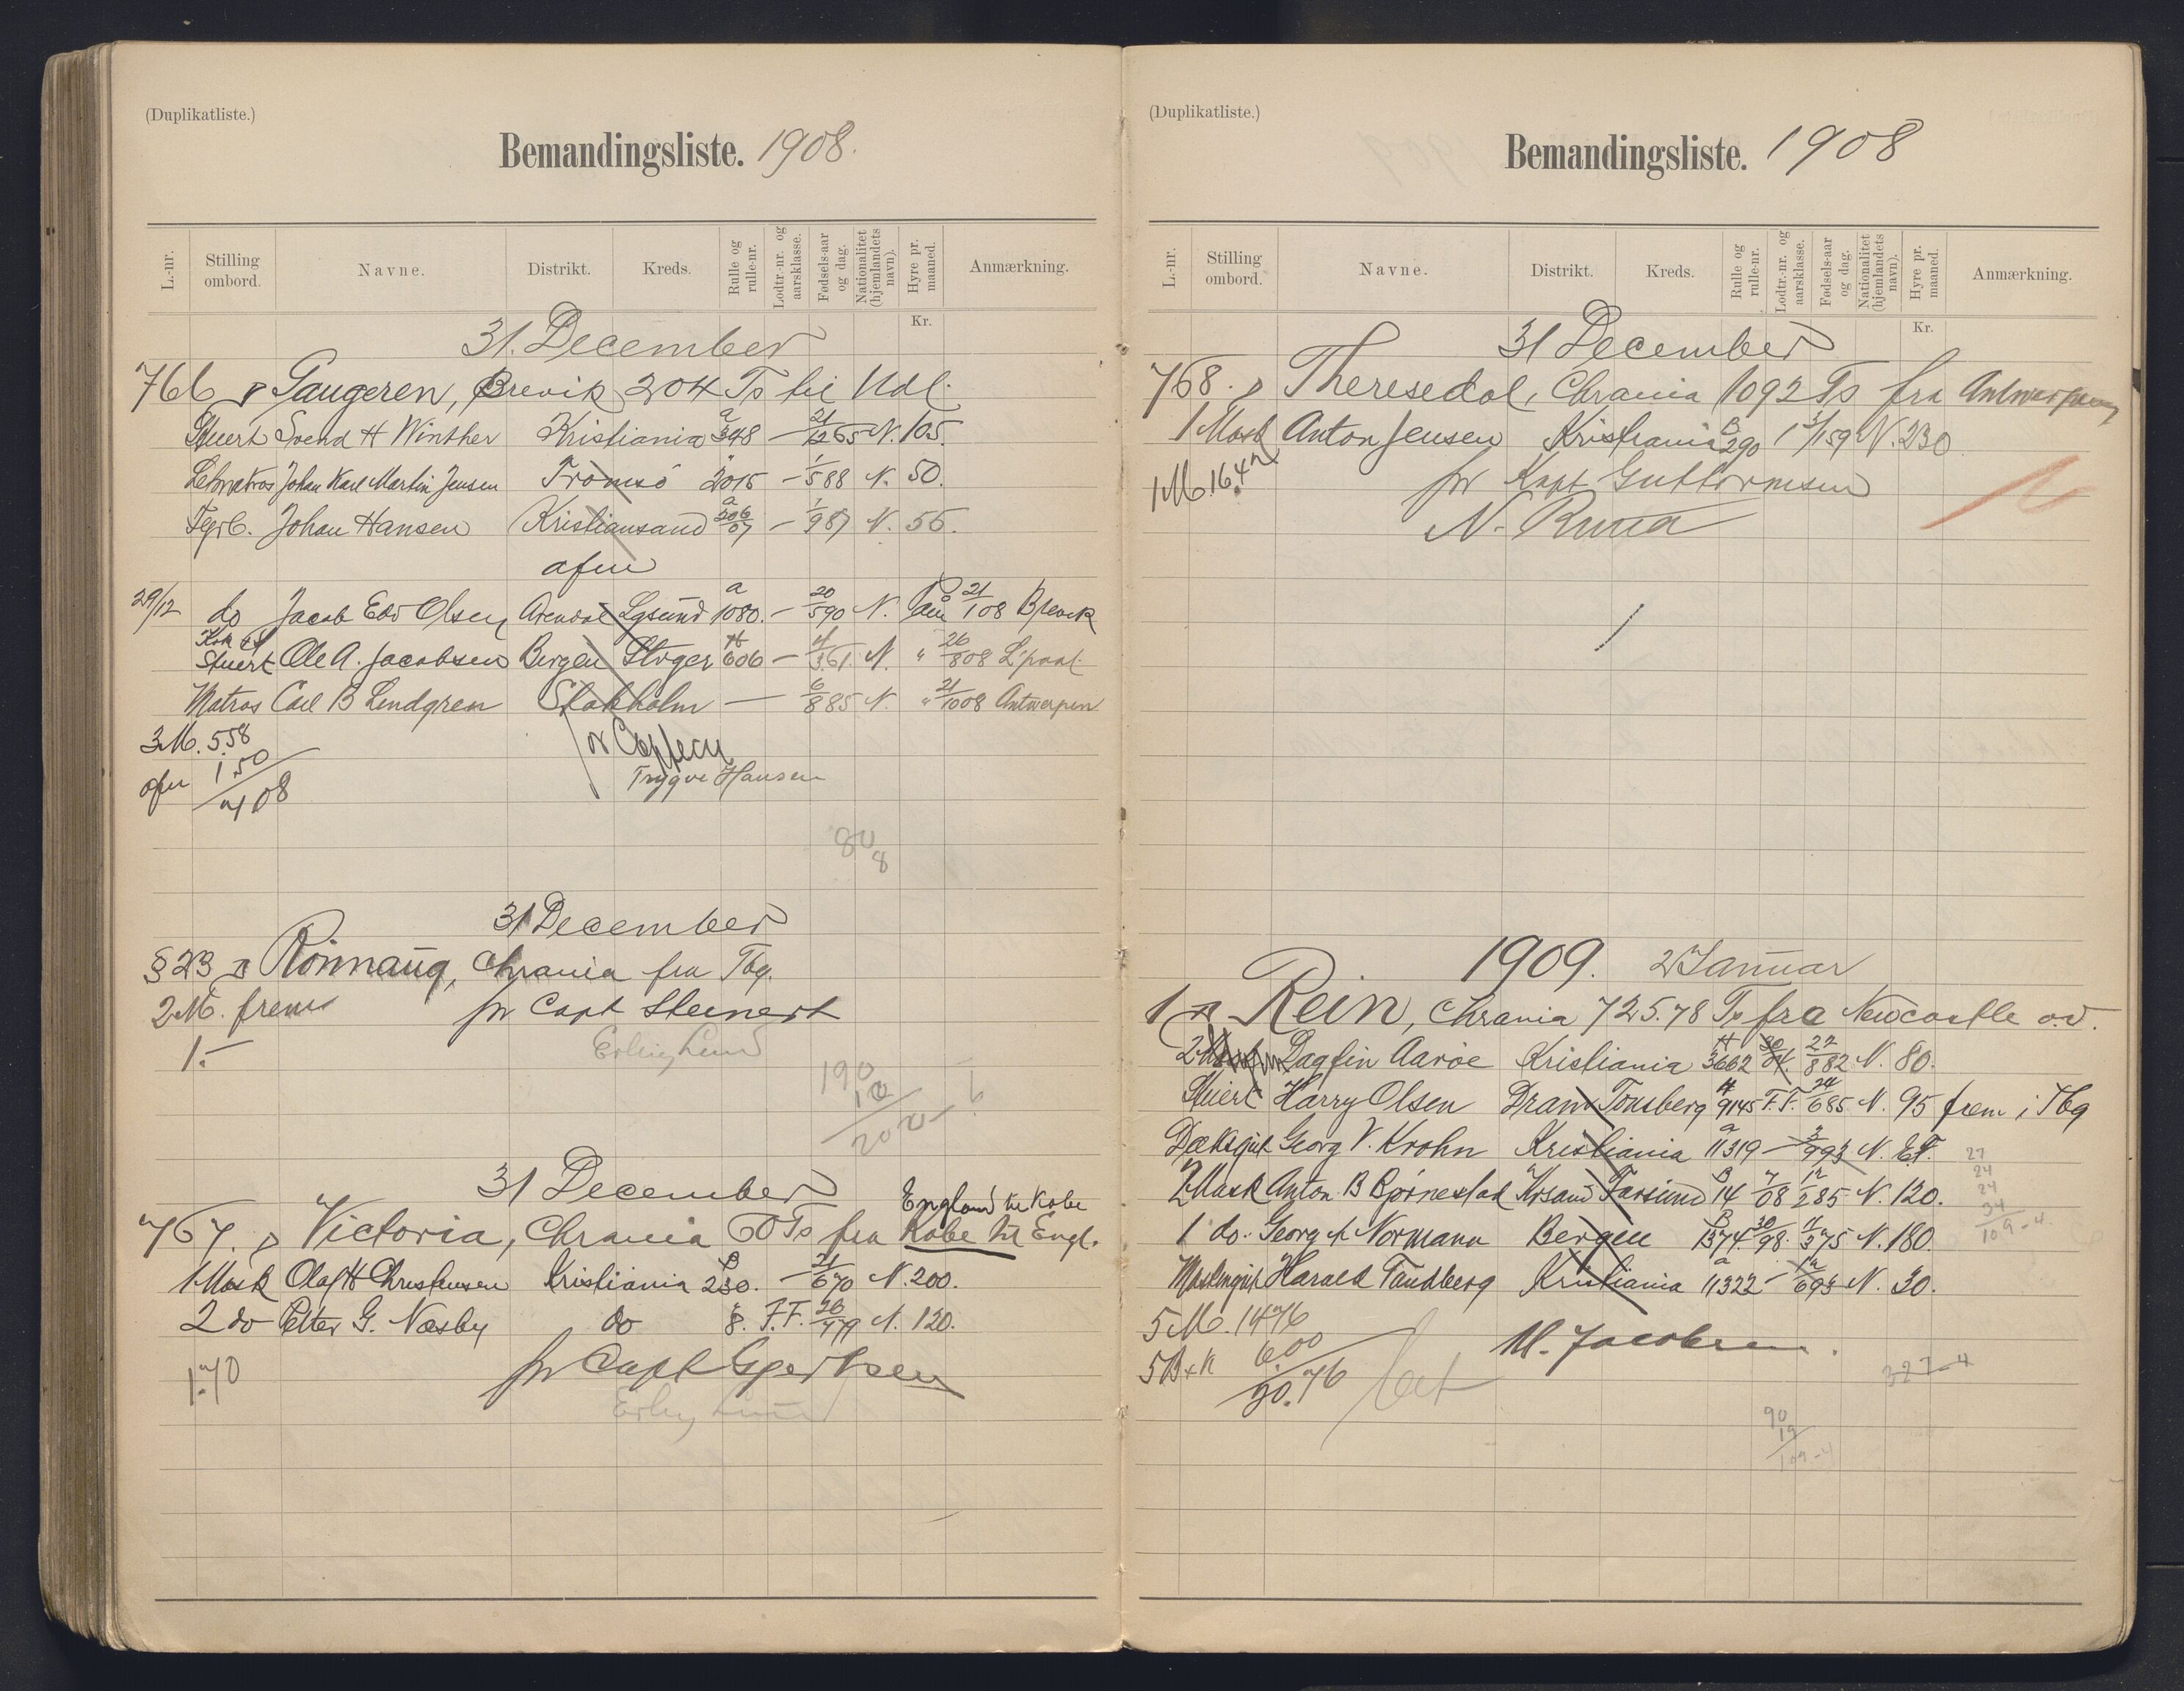 (Duplikatliste.)
Bemandingsliste. 1908.
L.-nr.
Stilling ombord.
Navne.
Distrikt.
Kreds.
Rulle og rulle-nr.
Lodtr.-nr. og aarsklasse.
Fødsels-aar og dag.
Nationalitet (hjemlandets navn).
Hyre pr. maaned.
Anmærkning.
Kr.
31. December
766 Gaugeren, Brevik 204 Ts til Udl.
Stuert Svend H Winther Kristiania a 348 — 21/12 65 N. 105.
Letmatros Johan Karl Martin Jensen Tromsö 2015 — 1/5 88 N. 50.
Fyrb. Johan Hansen Kristiansand a 206/07 — 1/9 87 N. 56.
afm
29/12 do Jacob Edv Olsen Arendal Lysund a 1080. — 20/5 90 N. 21/1 08 Brevik
Kok & Stuert Ole A. Jacobsen Bergen 606 — 4/3 61. N. " 26/8 08 L'pool.
Matros Carl B Lindgren Stokholm — 6/8 85 N. " 21/10 08 Antwerpen
3M. 5.58
afm 1.50
7.08
pr Cappeen
Trygve Hansen
31 December
§ 23 Rönnaug, Chrania fra Tbg.
2M. frem pr Capt Steinert
1.- Erling Lund
31 December
England til Kobe
767. Victoria, Chrania 60 Ts fra Kobe til Engl.
1 Mask Olaf H Christensen Kristiania B 230. — 21/6 70 N. 200.
2 do Petter G. Næsby do 8. F.F. 26/4 79 N. 120.
1.70 pr Capt Gjertsen
Erling Lund
(Duplikatliste.)
Bemandingsliste. 1908
L.-nr.
Stilling ombord.
Navne.
Distrikt.
Kreds.
Rulle og rulle-nr.
Lodtr.-nr. og aarsklasse.
Fødsels-aar og dag.
Nationalitet (hjemlandets navn).
Hyre pr. maaned.
Anmærkning.
Kr.
31 December
768. Theresedal, Chrania 1092 Ts fra Antwerpen
1 Mask Anton Jensen Kristiania B 290 1 59 N. 230
1M. 16.42 pr Kapt Guttormsen
N. Ruud
1909. 2 Januar
1 Rein, Chrania 725.78 Ts fra Newcastle o.s.v.
2 Dagfin Aarøe Kristiania 3662 30/04. 22/8 82 N. 80.
Stuert Harry Olsen Dram Tonsberg 9145 F.F. 24/6 85 N. 95 frem i Tbg
Dæksgut Georg V. Krohn Kristiania a 11319 — 3/9 93 N. E.F.
2 Mask Anton B Bjørnestad Krsand Farsund B 14 7/08 12/2 85 N. 120.
1 do. Georg A Normann Bergen B 1374. 30/98. 4/3 75 N. 180.
Maskingut Harald Tandberg Kristiania a 11322 — 12/6 93 N. 30.
5 M. 14.76
5 B+K 6.00
20.76
M. Jacobsen.